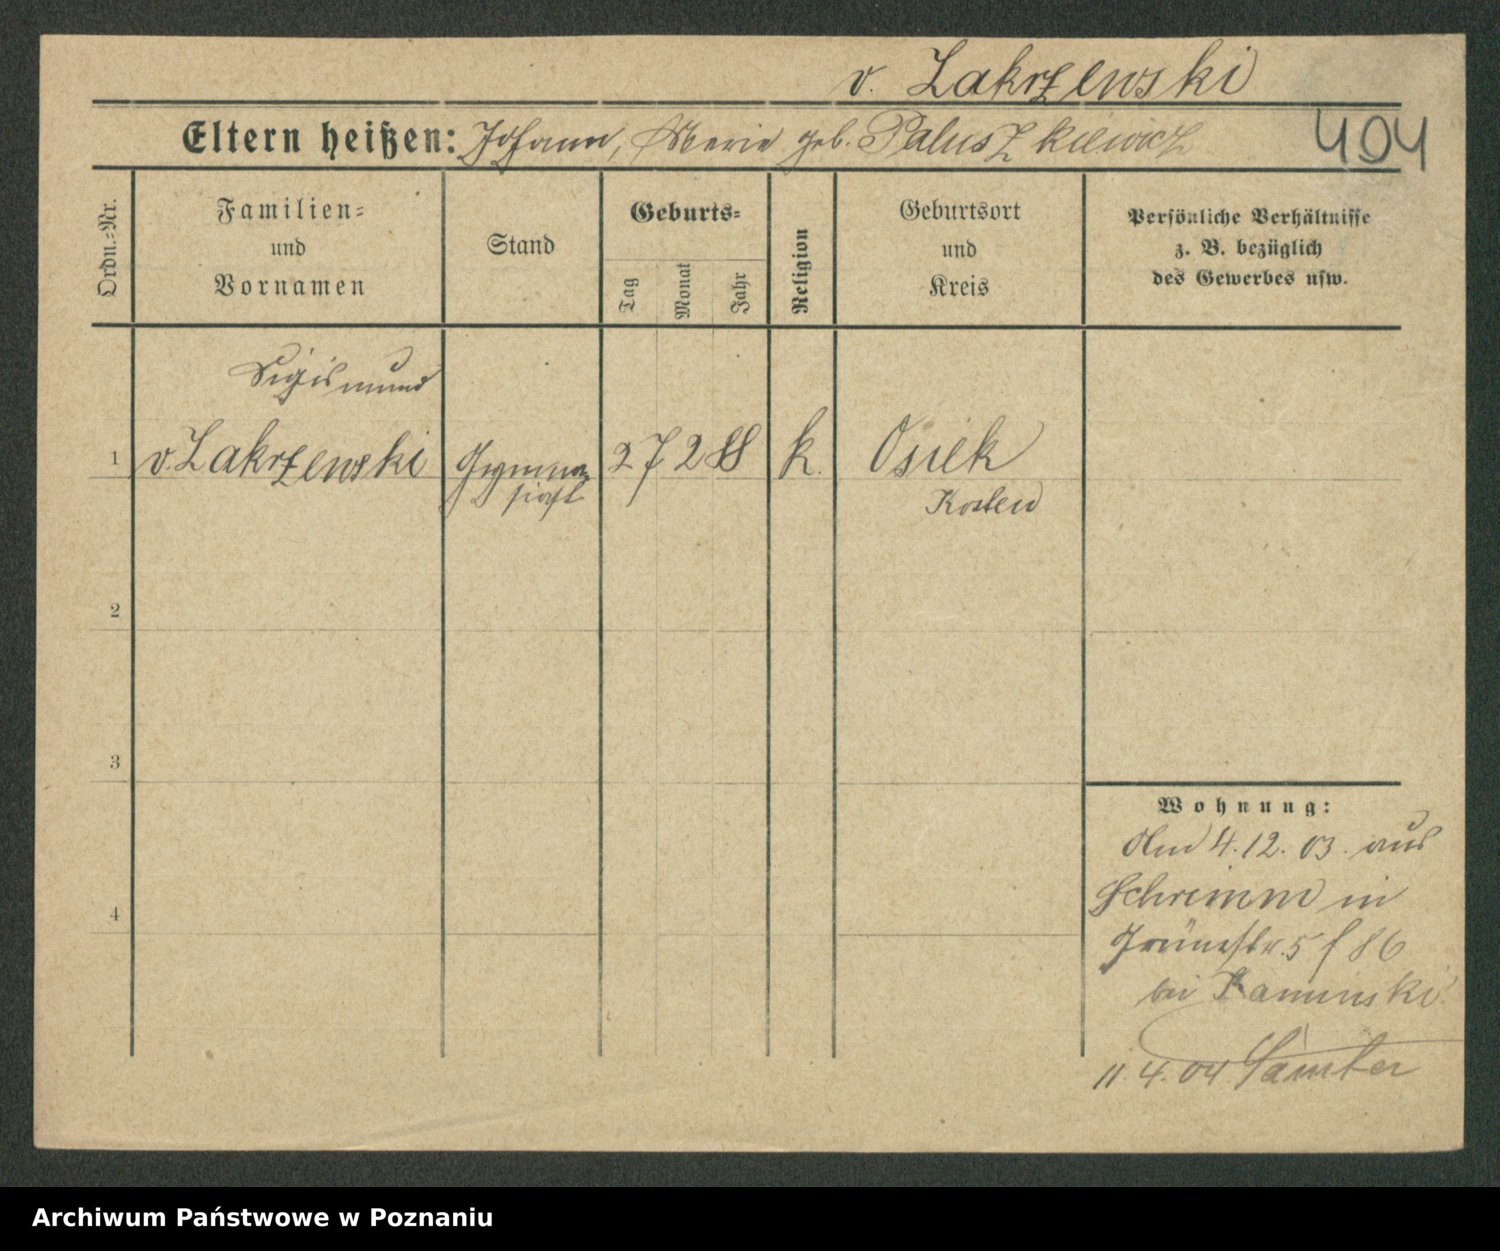 v. Zakrzewski
Eltern heißen: Johann, Marie geb. Paluszkiewicz
404
Ordn.-Nr.
Familien-
und
Vornamen
Stand
Geburts-
Tag
Monat
Jahr
Religion
Geburtsort
und
Kreis
Persönliche Verhältnisse
z. B. bezüglich
des Gewerbes usw.
Sigismund
1 v. Zakrzewski Gymna 27 2 88 k. Osiek
siast Kosten
2
3
4
Wohnung:
Am 4.12.03. aus
Schrimm in
Grünestr. 5 f 86
bei Kaminski
11.4.04 Samter
Archiwum Państwowe w Poznaniu